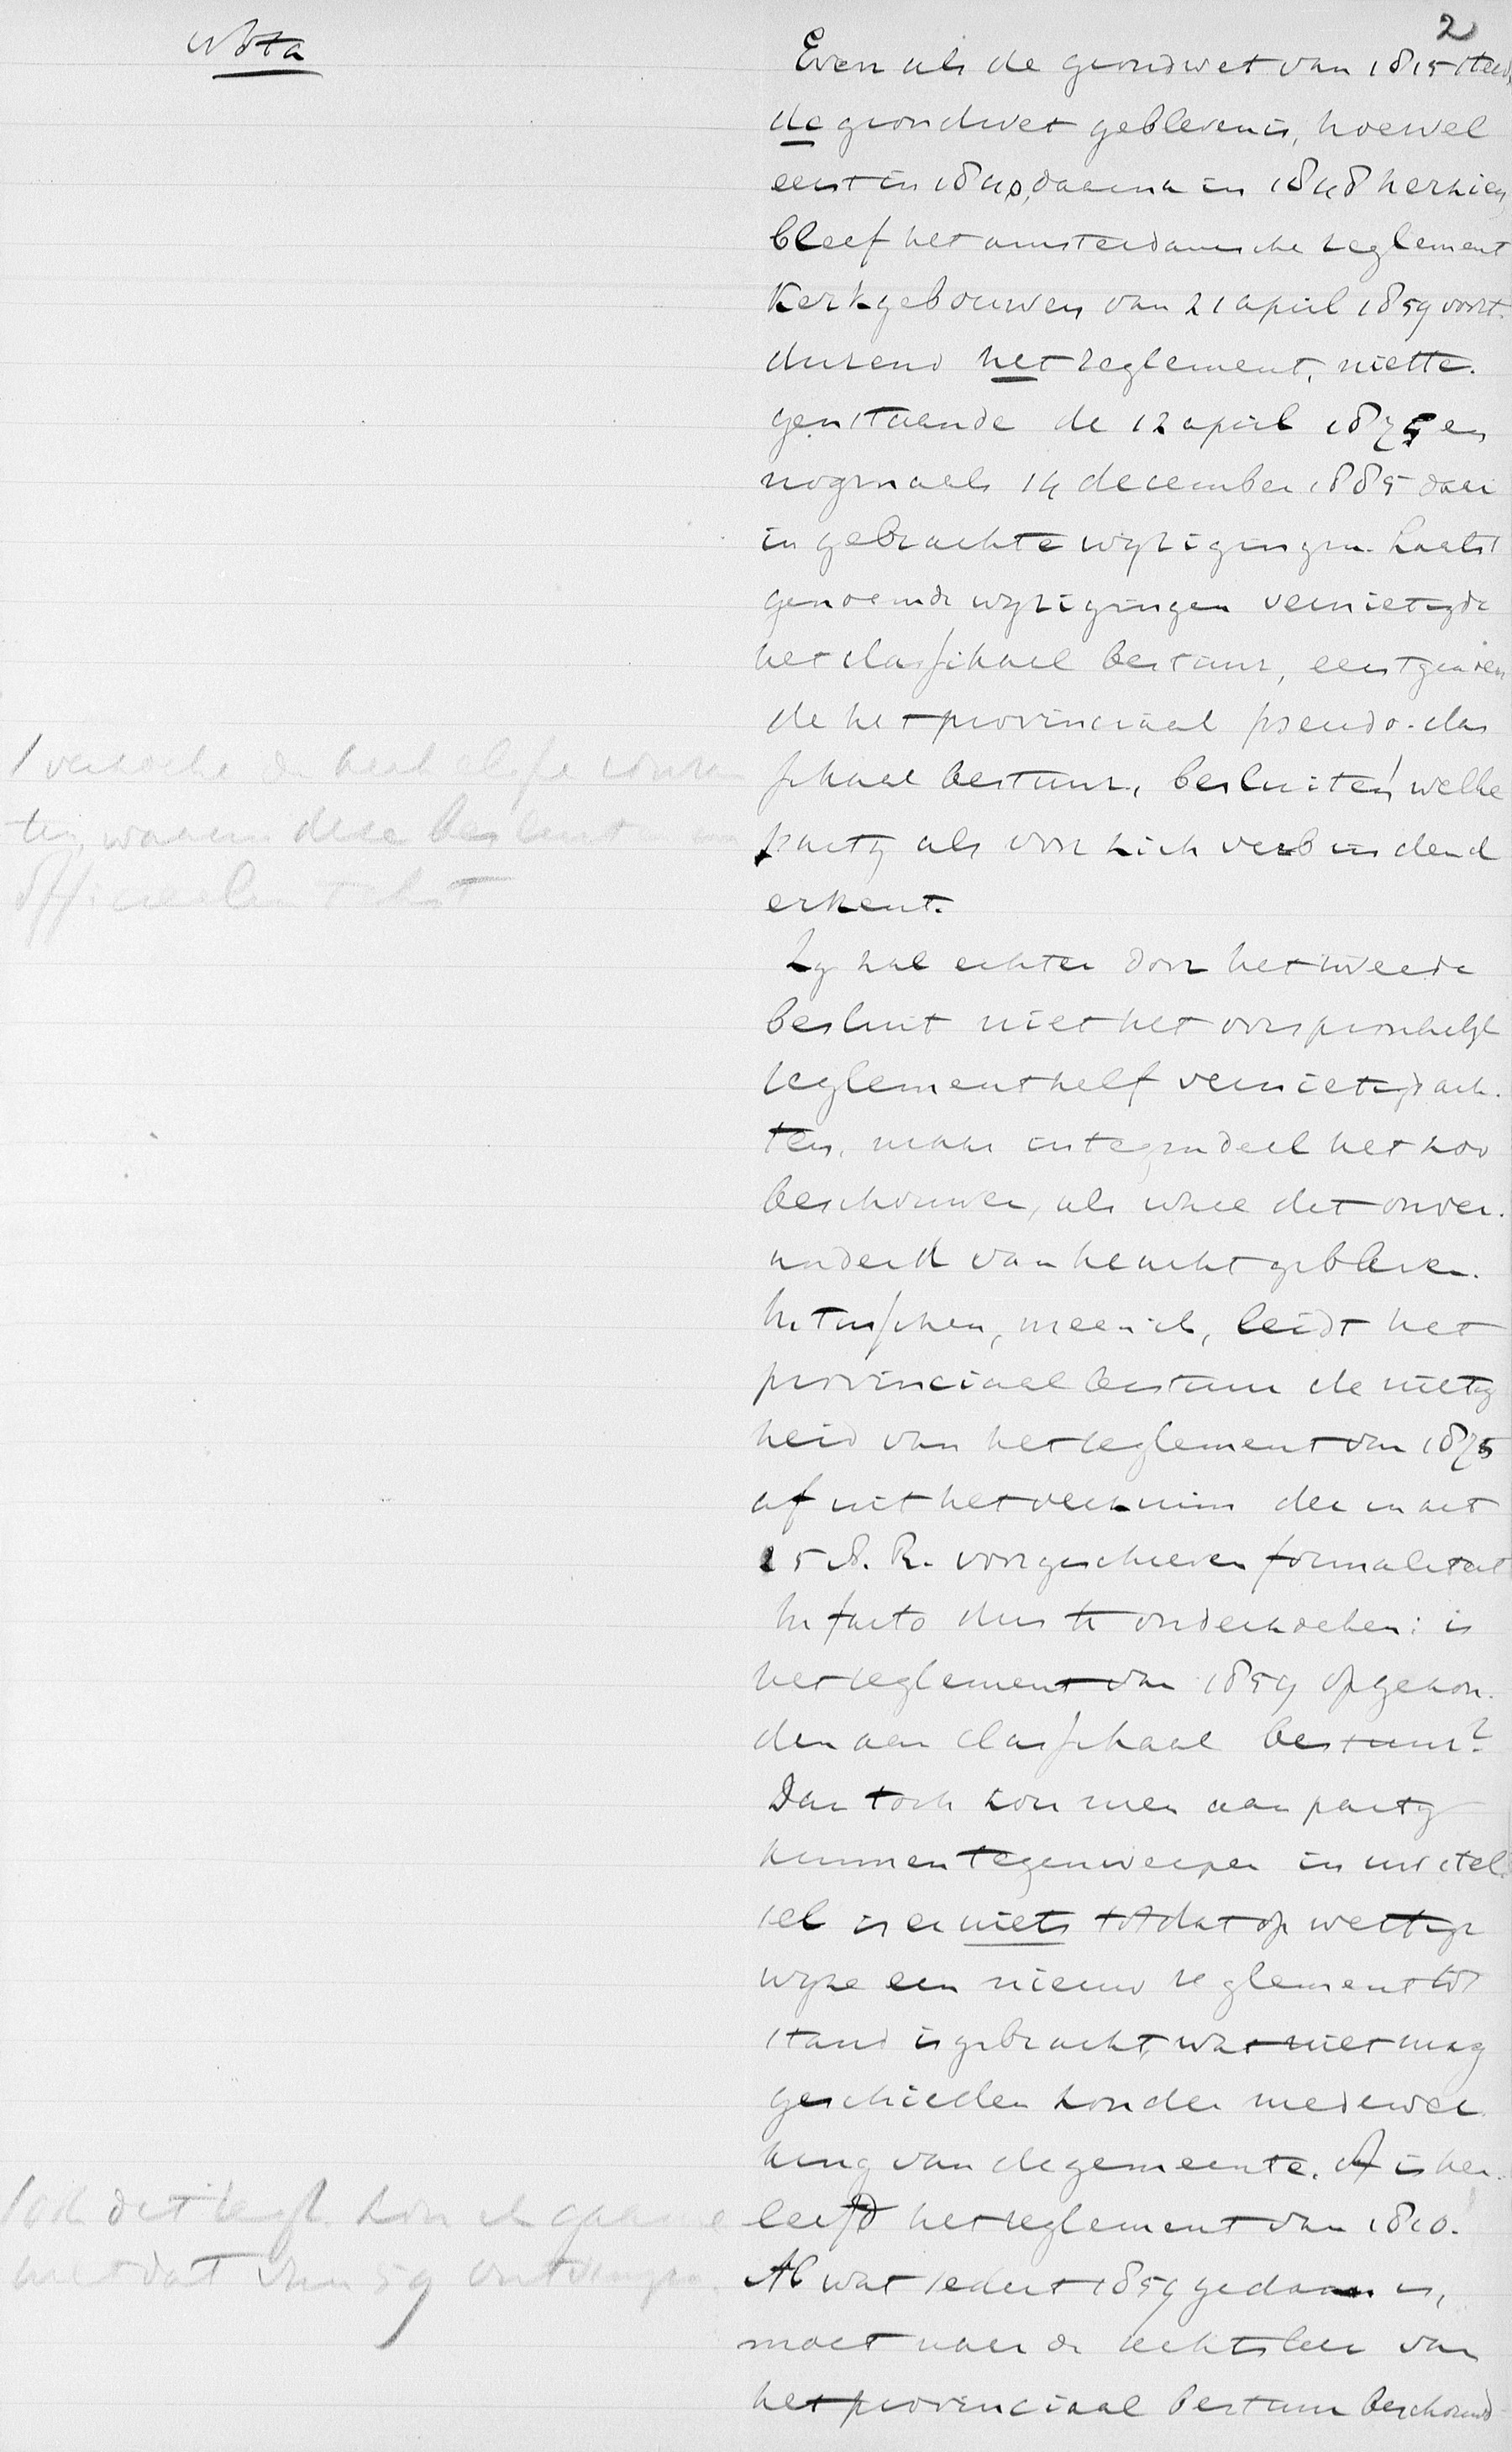 2
Nota
Even als de grondwet van 1815 steeds
de grondwet gebleven is, hoewel
eerst in 1840, daarna in 1848 herzien,
bleef het amsterdamsche reglement
Kerkgebouwen van 21 april 1859 voort-
durend het reglement, niette-
genstaande de 12 april 1875 en
nogmaals 14 december 1885 daar
in gebrachte wyzigingen. Laatst
genoemde wyzigingen vernietigde
het classikaal bestuur, eerstgenoem
de het provinciaal pseudo-clas
sikaal bestuur, besluiten welke
party als voor zich verbindend
erkent.
/ verzoeke de kerkelyke couran
ten, waarin deze besluiten
officieelen tekst
Zy zal echter door het tweede
besluit niet het oorspronkelyk
reglement zelf vernietigd ach-
ten, maar integendeel het zoo
beschouwen, als ware dit onver-
anderd van kracht gebleven.
Intusschen, meen ik, leidt het
provinciaal bestuur de nietig
heid van het reglement van 1875
af uit het verzuim der in art
25 S. R. voorgeschreven formaliteit
In facto dus te onderzoeken: is
het reglement van 1859 opgezon-
den aan classikaal bestuur?
Dan toch zou men aan party
kunnen tegenwerpen in uw stel-
sel is er niets totdat op wettige
wyze een nieuw reglement tot
stand is gebracht, wat niet mag
geschieden zonder medewer
king van de gemeente. Of is her-
leefd het reglement van 1810!
/ Ook dit regl. zou ik gaarne
met dat van 59 ontvangen.
Al wat sedert 1859 gedaan is,
moet naar de rechtsleer van
het provinciaal bestuur beschouwd